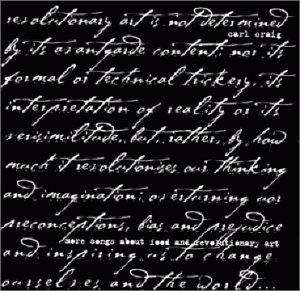 revolutionary art is not determined
carl craig
by its avantgarde content, nor its
formal or technical trickery, its
interpretation of reality or its
verisimilitude, but, rather, by how
much it revolutionises our thinking
and imagination; overturning our
preconceptions, bias and prejudice
more songs about food and revolutionary art
and inspiring us to change
ourselves and the world...